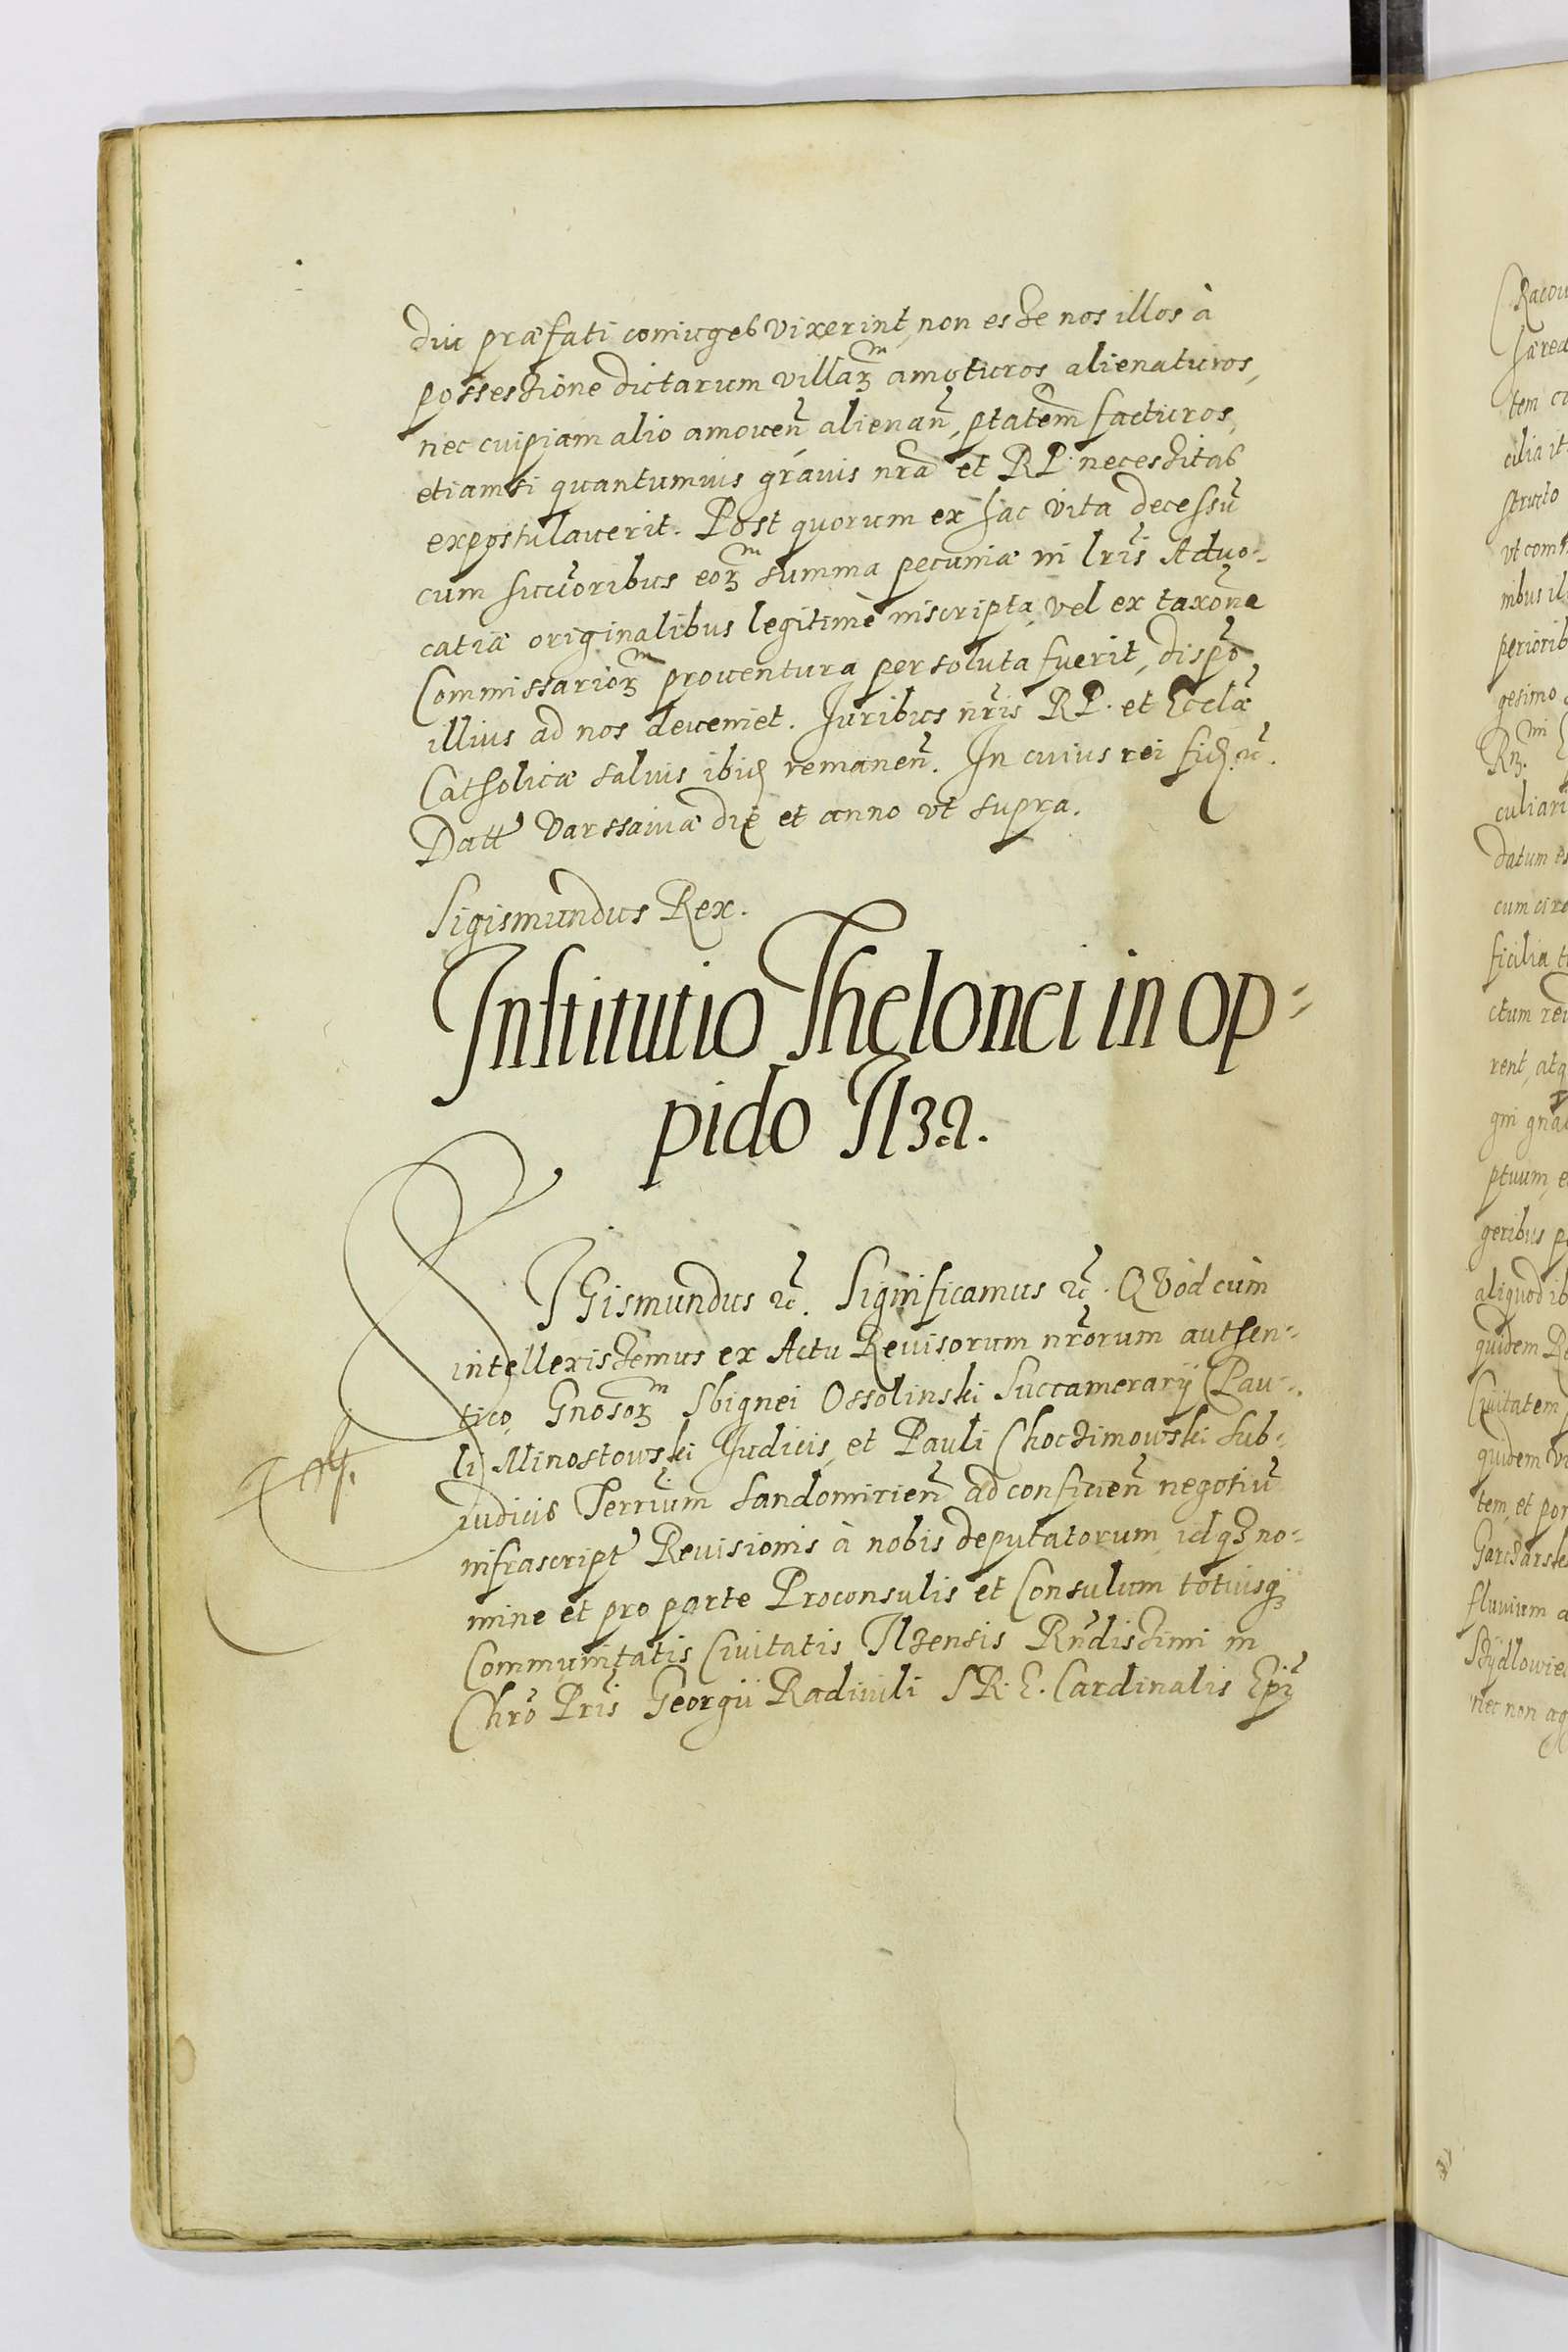 diu præfati coniuges vixerint, non esse nos illos à
possessione dictarum villarꝫ^m amoturos alienaturos,
nec cuipiam alio amouen̄ alienan̄, ptatem̄ facturos,
etiamsi quantumuis grauis nr̄a et RP. necessitas
expostulauerit. Post quorum ex hac vita decessū
cum succ̄oribus eorꝫ^m summa pecuniæ in lr̄is Aduo-
catiæ originalibus legitimè inscripta, vel ex taxōne
Commissariorꝫ^m prouentura persoluta fuerit, dispō
illius ad nos deueniet. Juribus nr̄is RP. et Eccłæ
Catholicæ saluis ibiđ remanen̄. In cuius rei fiđ. ꝛc̄.
Datt̄ Varssauiæ die et anno vt supra.
Sigismundus Rex.
Institutio Thelonei in op-
pido Ilza.
SIGismundus ꝛc̄. Significamus ꝛc̄. QVod cùm
intellexissemus ex Actu Reuisorum nr̄orum authen-
tico, Gnosorꝫ^m Sbignei Ossolinski Succamerarij, Pau-
li Minostowski Judicis, et Pauli Chocimowski Sub-
iudicis Terrūm Sandomirien̄ ad conficien̄ negotiū
infrascript̄ Reuisionis à nobis deputatorum, idqꝫ no-
mine et pro parte Proconsulis et Consulum totiusqꝫ
Communitatis Ciuitatis Ilzensis Rn̄dissimi in
Chr̄o Pr̄is Georgii Radiuili S R. E. Cardinalis Ep̄i
Racou
hæred
tem co
cilia it
structo
vt com
nibus il
periorib
gesimo
Rꝫ.^mi
culiari
datum es
cum circ
ficilia t
ctum re
rent, atq
gni gn̄a
ptuum, e
geribus p
aliquod ib
quidem R
Ciuitatem
quidem vi
tem, et por
Garbarsk
fluuium a
Szydlowie
nec non aq